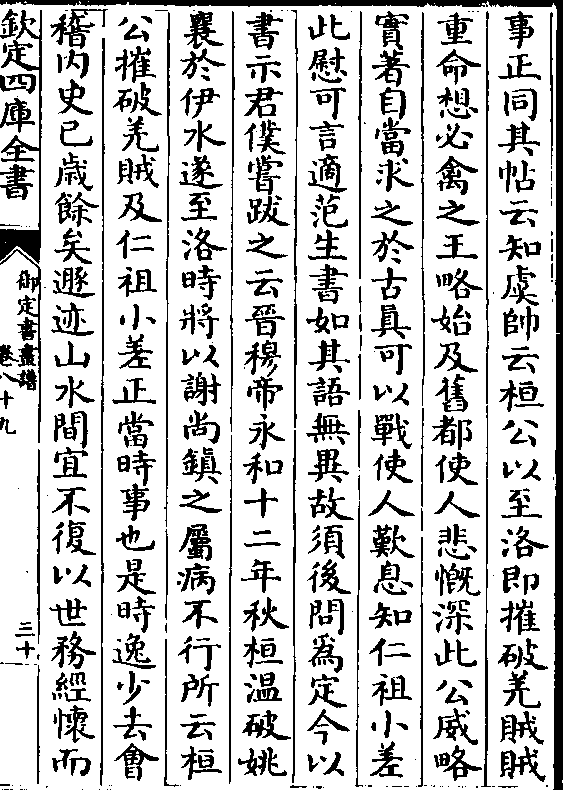 事正同其帖云知虞帥云桓公以至洛即摧破羌賊賊
重命想必禽之王略始及舊都使人悲慨深此公威略
實著自當求之於古真可以戰使人歎息知仁祖小差
此慰可言適范生書如其語無異故須後問爲定今以
書示君僕嘗跋之云晉穆帝永和十二年秋桓温破姚
襄於伊水遂至洛時將以謝尚鎮之屬病不行所云桓
公摧破羌賊及仁祖小差正當時事也是時逸少去會
稽内史已歲餘矣遯迹山水間宜不復以世務經懷而
欽定四庫全書
御定書畫譜
卷八十九
三十